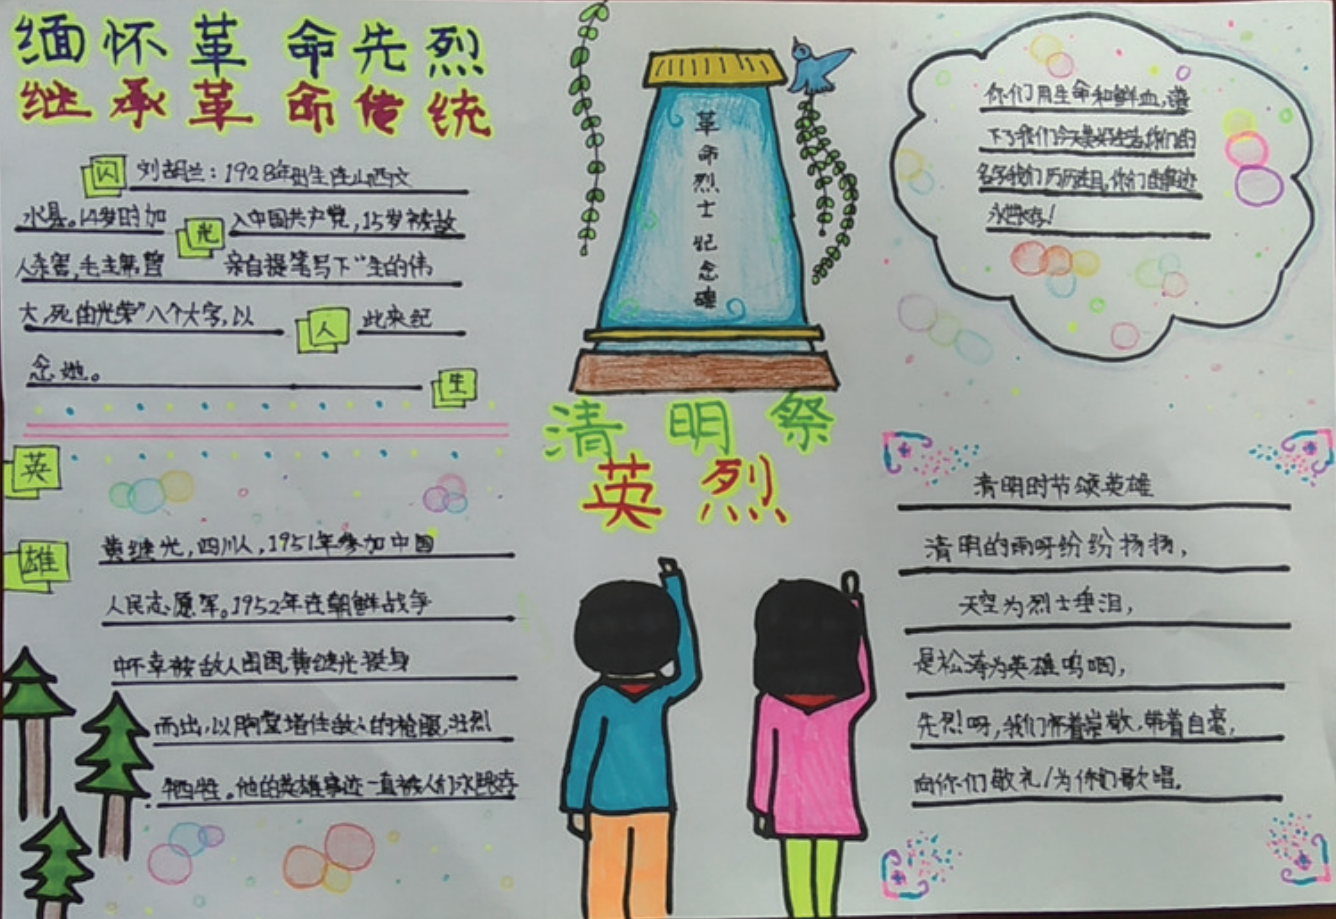 缅怀革命先烈
继承革命传统
闪光人生
刘胡兰：1928年出生在山西文
水县。14岁时加入中国共产党，15岁被敌
人杀害，毛主席曾亲自提笔写下“生的伟
大，死的光荣”八个大字，以此来纪
念她。
英雄
黄继光，四川人，1951年参加中国
人民志愿军。1952年在朝鲜战争
中不幸被敌人围困，黄继光挺身
而出，以胸堂堵住敌人的枪眼，壮烈
牺牲。他的英雄事迹一直被人们永远存
革命烈士纪念碑
清明祭
英烈
你们用生命和鲜血，
下了我们今天美好生活，你们的
名字我们历历在目，你们的事迹
永世长存！
清明时节颂英雄
清明的雨呀纷纷扬扬，
天空为烈士垂泪，
是松涛为英雄呜咽，
先烈呀，我们怀着崇敬，带着自豪，
向你们敬礼！为你们歌唱。